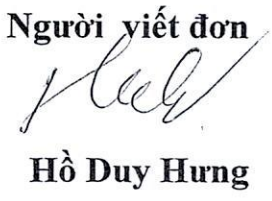 Người viết đơn
Hồ Duy Hưng